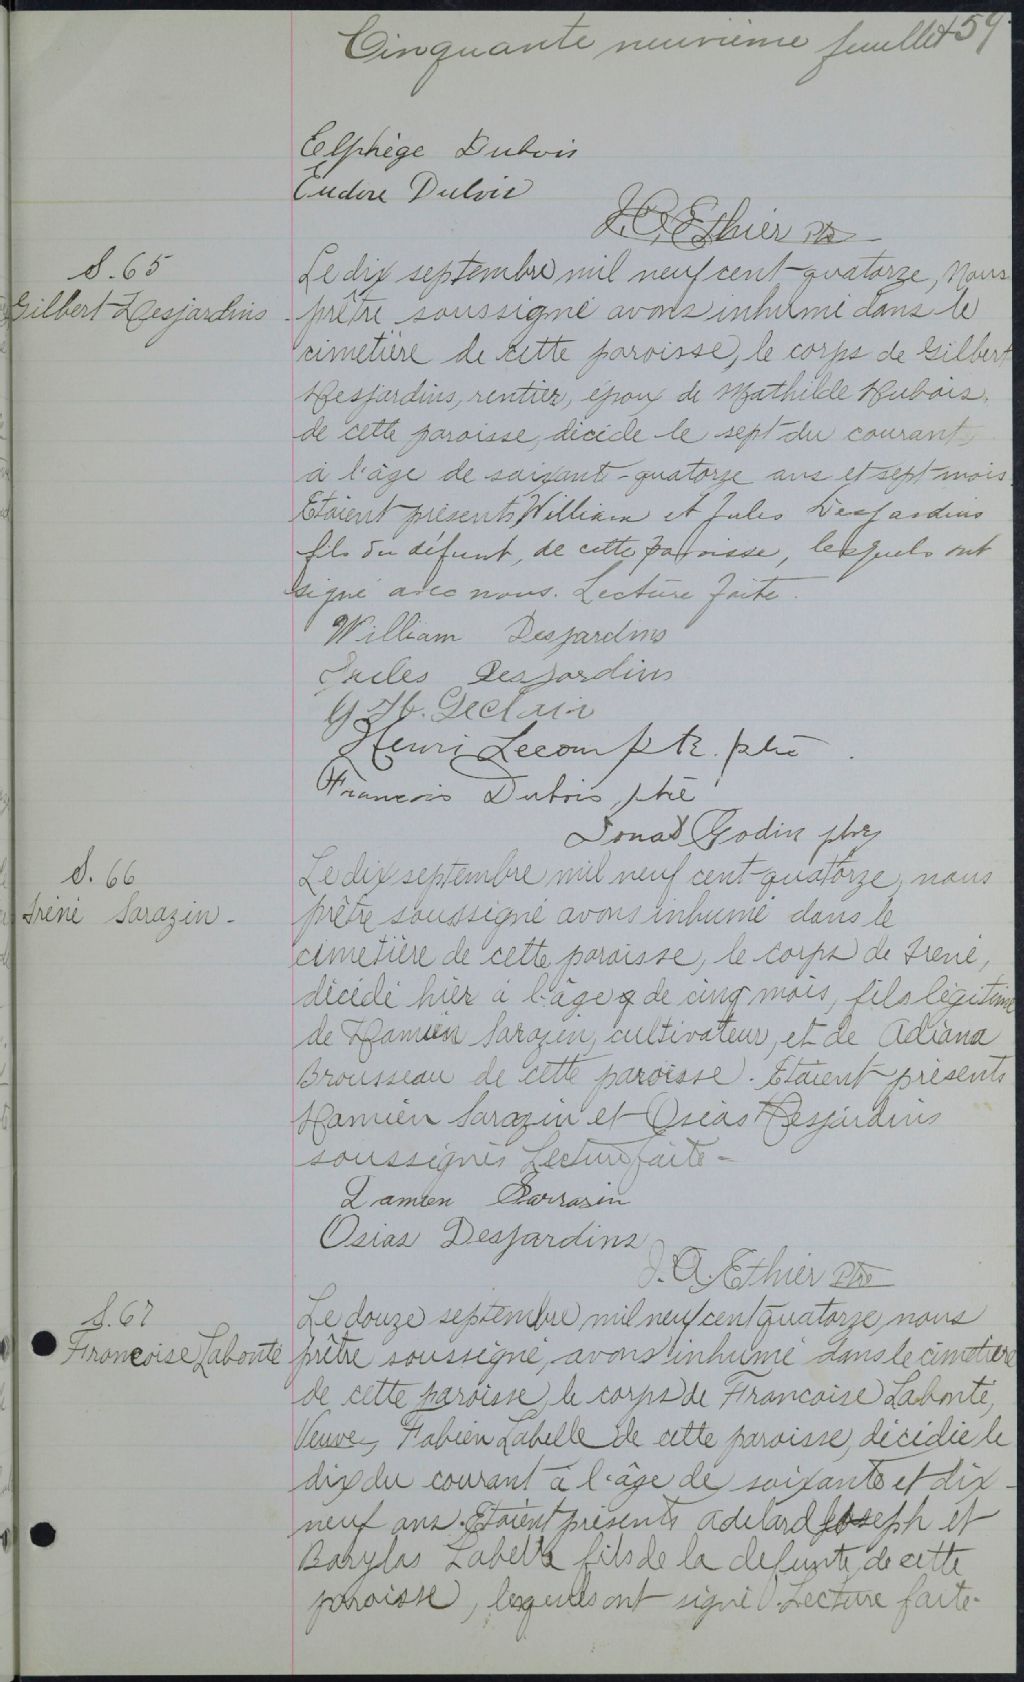 Cinquante neuvième feuillet 59
Elphège Dubois
Eudore Dubois
J. A. Ethier Ptre
S. 65
Gilbert Desjardins
Le dix septembre mil neuf cent quatorze, Nous
prêtre soussigné avons inhumé dans le
cimetière de cette paroisse, le corps de Gilbert
Desjardins, rentier, époux de Mathilde Dubois,
de cette paroisse, décédé le sept du courant,
à l'âge de soixante-quatorze ans et sept mois.
Etaient présents William et Jules Desjardins
fils du défunt, de cette paroisse, lesquels ont
signé avec nous. Lecture faite.
William Desjardins
Jules Desjardins
Leclair
Henri Lecompte ptre
Francois Dubois, ptre
Donat Godin ptre
S. 66
Iréné Sarazin -
Le dix septembre mil neuf cent quatorze, nous
prêtre soussigné avons inhumé dans le
cimetière de cette paroisse, le corps de Irené,
décédé hier à l'âge de cinq mois, fils légitime
de Damien Sarazin, cultivateur, et de Adiana
Brousseau de cette paroisse. Etaient présents
Damien Sarazin et Osias Desjardins
soussignés Lecture faite -
Damien Sarrazin
Osias Desjardins
J. A. Ethier Ptre
S. 67
Francoise Labonté
Le douze septembre mil neuf cent quatorze, nous
prêtre soussigné, avons inhumé dans le cimetière
de cette paroisse, le corps de Francoise Labonté,
Veuve, Fabien Labelle de cette paroisse, décédie le
dix du courant à l'âge de soixante et dix-
neuf ans. Etaient présents Adelard Joseph et
Barylas Labelle fils de la defunte, de cette
paroisse, lesquels ont signé. Lecture faite.